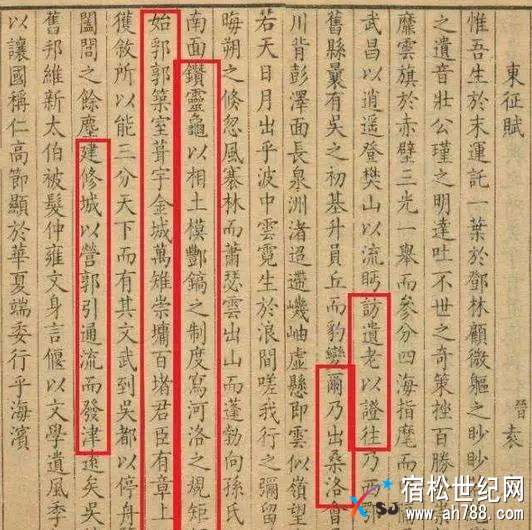 東征賦 晉袁
惟吾生於末運託一葉於鄧林顧微軀之眇眇
之遺音壯公瑾之明達吐不世之奇策挫百勝
靡雲旗於赤壁三光一舉而參分四海指麾而
武昌以逍遥登樊山以流眄訪遺老以證往乃西鄂
舊縣曩有吳之初基升員丘而豹變爾乃出桑洛會
川背彭澤面長泉洲渚迢遰巘岫虛懸即雲似嶺望
若天日月出乎波中雲霓生於浪間嗟我行之彌留
晦朔之倏忽風褰林而蕭瑟雲出山而蓬勃向孫氏
南面鑽靈龜以相土模酆鎬之制度寫河洛之規矩
始郭郭築室葺宇金城萬雉崇墉百堵君臣有章上
獲敘所以能三分天下而有其文武到吳都以停身
闔閭之餘塵建修城以營郭引通流而發津遠矣吳
舊邦維新太伯被髮仲雍文身言偃以文學遺風季
以讓國稱仁高節顯於華夏端委行乎海濱
宿松世纪网
www.ah788.com